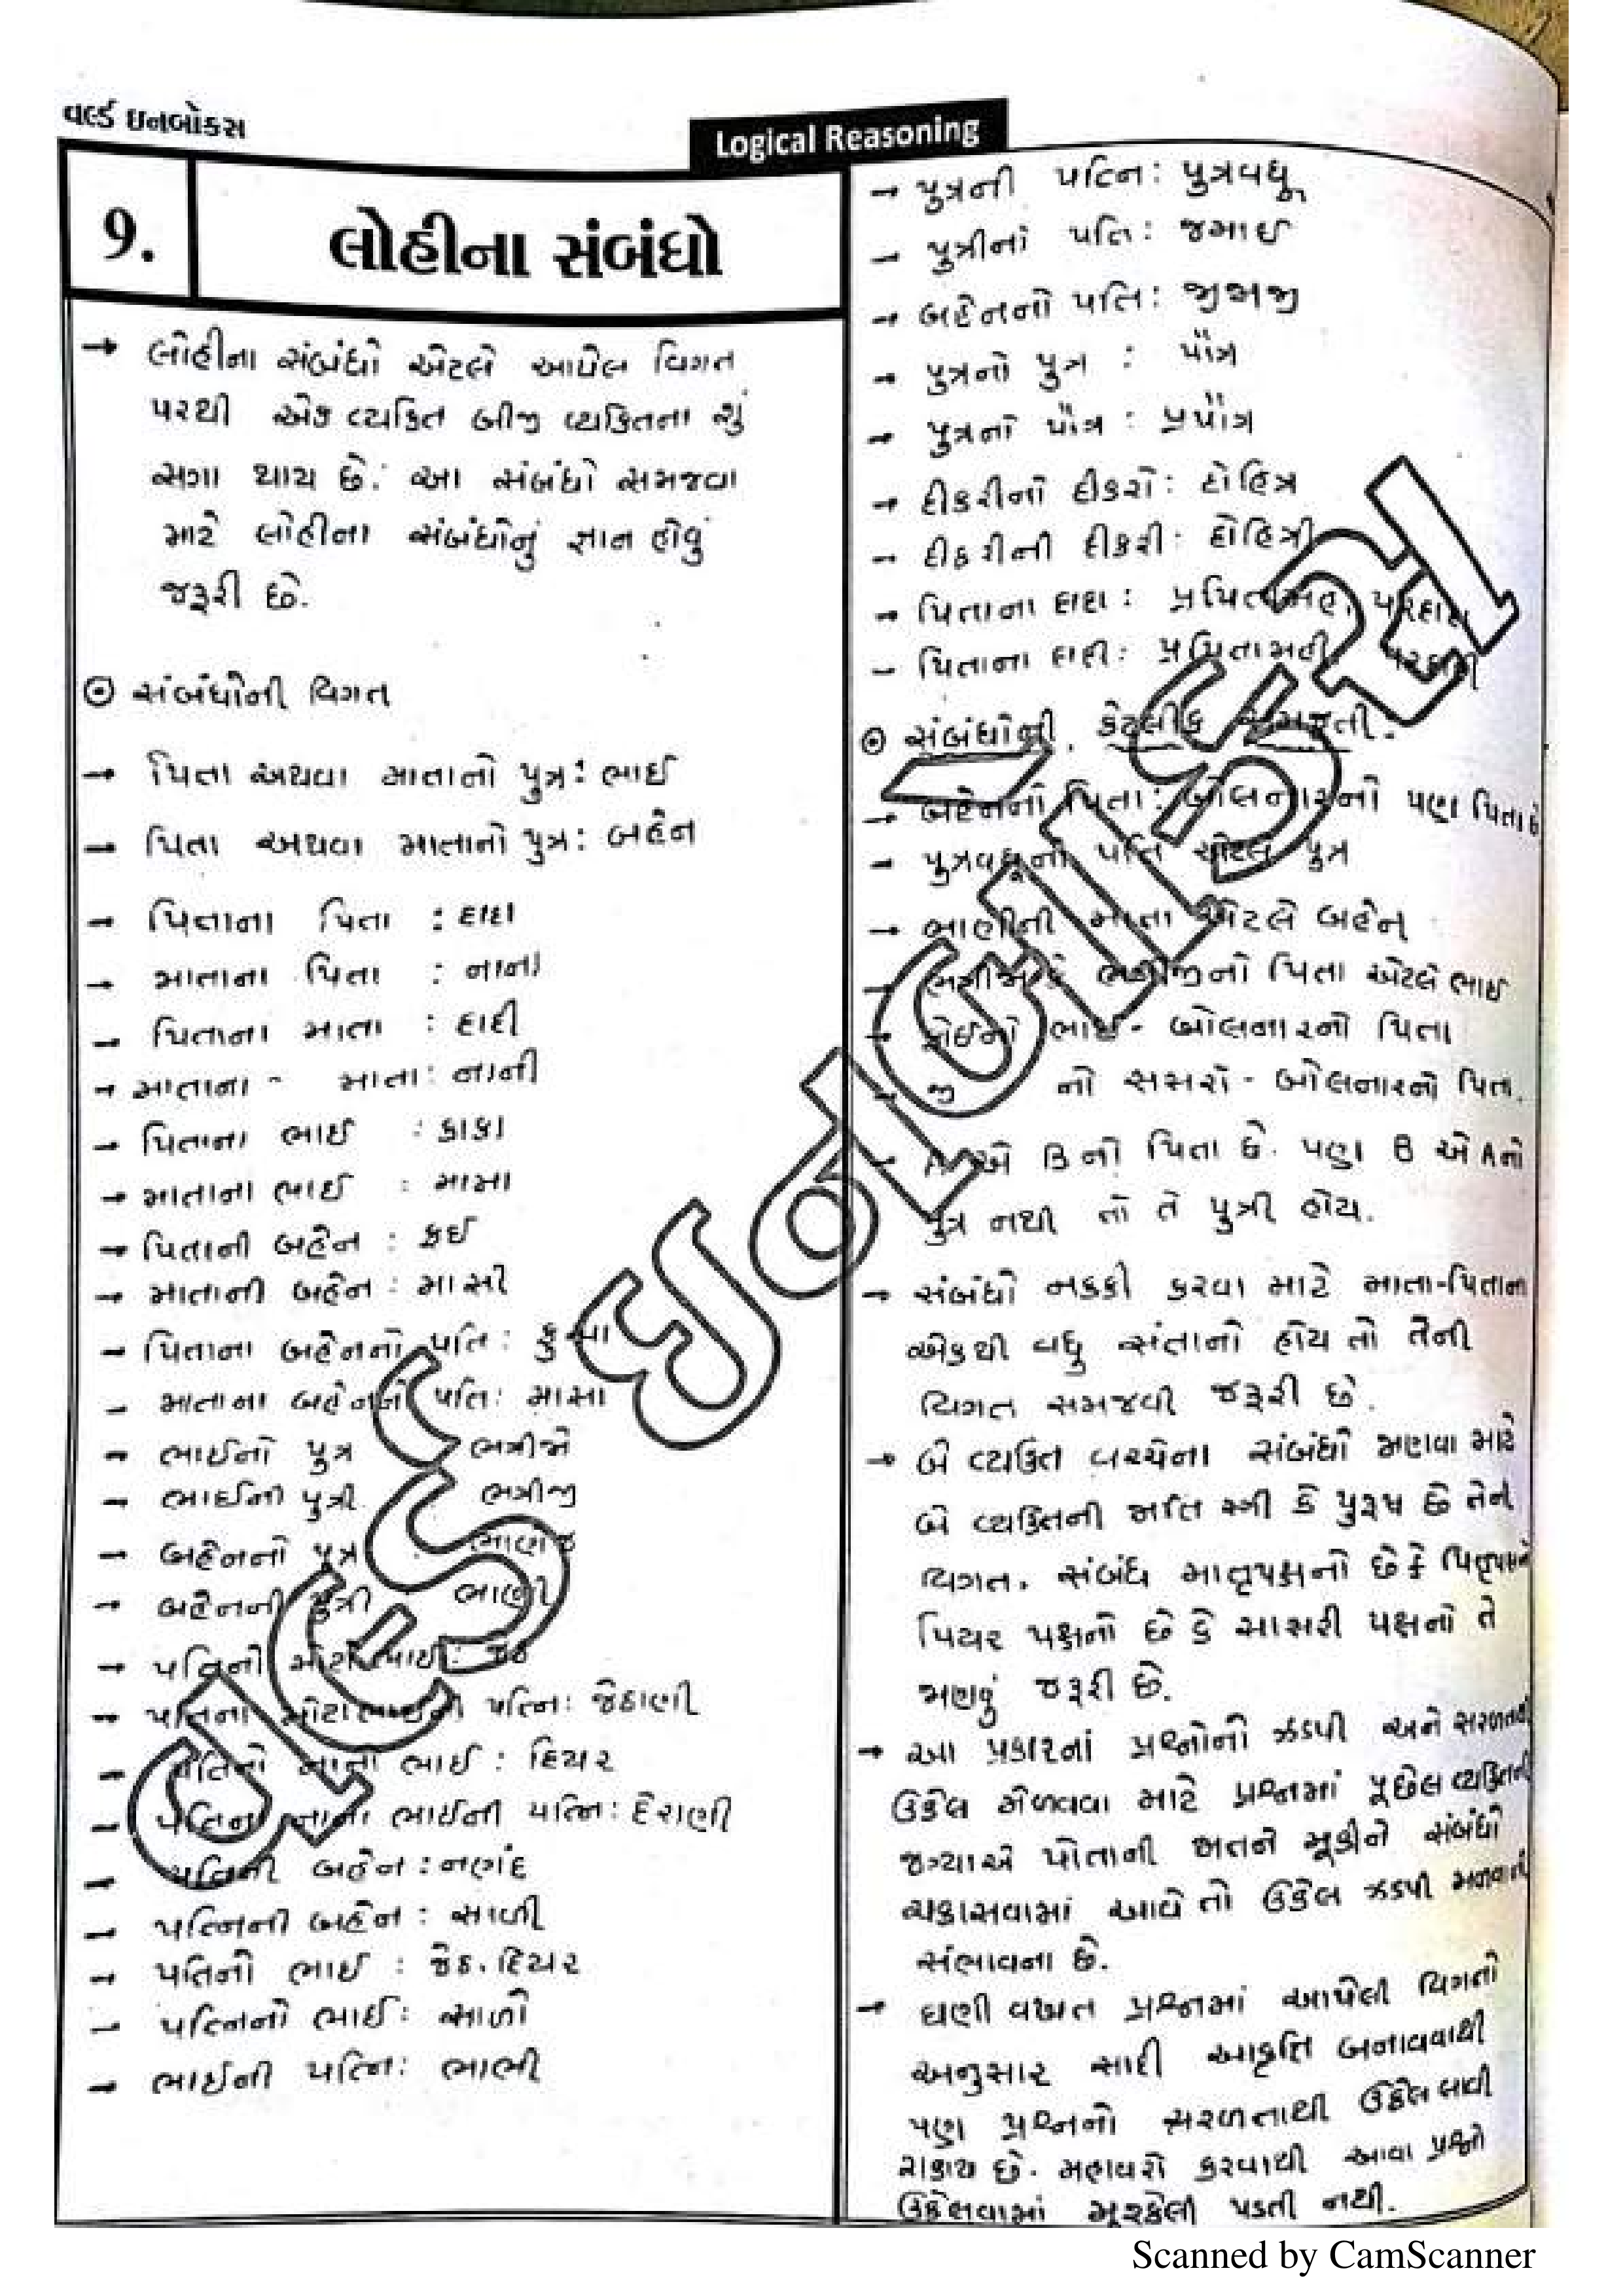 વર્લ્ડ ઇનબોક્સ
Logical Reasoning
9.
લોહીના સંબંધો
→ લોહીના સંબંધો એટલે આપેલ વિગત
પરથી એક વ્યકિત બીજી વ્યકિતના શું
સગા થાય છે. આ સંબંધો સમજવા
માટે લોહીના સંબંધોનું જ્ઞાન હોવું
જરૂરી છે.
⊙ સંબંધોની વિગત
→ પિતા અથવા માતાનો પુત્ર: ભાઈ
→ પિતા અથવા માતાનો પુત્ર: બહેન
→ પિતાના પિતા : દાદા
→ માતાના પિતા : નાના
→ પિતાના માતા : દાદી
→ માતાના - માતા: નાની
→ પિતાના ભાઈ : કાકા
→ માતાના ભાઈ : મામા
→ પિતાની બહેન : ફઈ
→ માતાની બહેન : માસી
→ પિતાના બહેનનો પતિ: ફુઆ
- માતાના બહેનનો પતિ: માસા
→ ભાઈનો પુત્ર ભત્રીજો
→ ભાઈની પુત્રી ભત્રીજી
→ બહેનનો પુત્ર ભાણેજ
→ બહેનની પુત્રી ભાણી
→ પતિનો મોટોભાઈ: જેઠ
→ પતિના મોટાભાઈની પત્નિ: જેઠાણી
→ પતિનો નાનો ભાઈ : દિયર
→ પતિના નાના ભાઈની પત્નિ: દેરાણી
→ પતિની બહેન : નણંદ
→ પત્નિની બહેન : સાળી
→ પતિનો ભાઈ : જેઠ, દિયર
→ પત્નિનો ભાઈ: સાળો
→ ભાઈની પત્નિ: ભાભી
→ પુત્રની પત્નિ: પુત્રવધૂ
→ પુત્રીનો પતિ: જમાઈ
→ બહેનનો પતિ: જીજાજી
→ પુત્રનો પુત્ર : પૌત્ર
→ પુત્રનો પૌત્ર : પ્રપૌત્ર
→ દીકરીનો દીકરો: દોહિત્ર
→ દીકરીની દીકરી: દોહિત્રી
→ પિતાના દાદા: પ્રપિતામહ, પરદાદા
→ પિતાના દાદી: પ્રપિતામહી, પરદાદી
⊙ સંબંધોની કેટલીક સમજૂતી.
→ બહેનનો પિતા: બોલનારનો પણ પિતા છે
→ પુત્રવધૂનો પતિ એટલે પુત્ર
→ ભાણીની માતા એટલે બહેન
→ ભત્રીજા કે ભત્રીજીનો પિતા એટલે ભાઈ
→ ફોઈનો ભાઈ - બોલનારનો પિતા
નો સસરો - બોલનારનો પિતા.
→ A એ B નો પિતા છે. પણ B એ A નો
પુત્ર નથી તો તે પુત્રી હોય.
→ સંબંધો નકકી કરવા માટે માતા-પિતાના
એકથી વધુ સંતાનો હોય તો તેની
વિગત સમજવી જરૂરી છે.
→ બે વ્યકિત વચ્ચેના સંબંધો જાણવા માટે
બે વ્યકિતની જાતિ સ્ત્રી કે પુરૂષ છે તેની
વિગત, સંબંધ માતૃપક્ષનો છે કે પિતૃપક્ષનો
પિયર પક્ષનો છે કે સાસરી પક્ષનો તે
જાણવું જરૂરી છે.
→ આ પ્રકારનાં પ્રશ્નોનો ઝડપી અને સરળતાથી
ઉકેલ મેળવવા માટે પ્રશ્નમાં પૂછેલ વ્યકિતની
જગ્યાએ પોતાની જાતને મૂકીને સંબંધો
ચકાસવામાં આવે તો ઉકેલ ઝડપી મળવાની
સંભાવના છે.
→ ઘણી વખત પ્રશ્નમાં આપેલી વિગતો
અનુસાર સાદી આકૃતિ બનાવવાથી
પણ પ્રશ્નનો સરળતાથી ઉકેલ લાવી
શકાય છે. મહાવરો કરવાથી આવા પ્રશ્નો
ઉકેલવામાં મૂશ્કેલી પડતી નથી.
Scanned by CamScanner